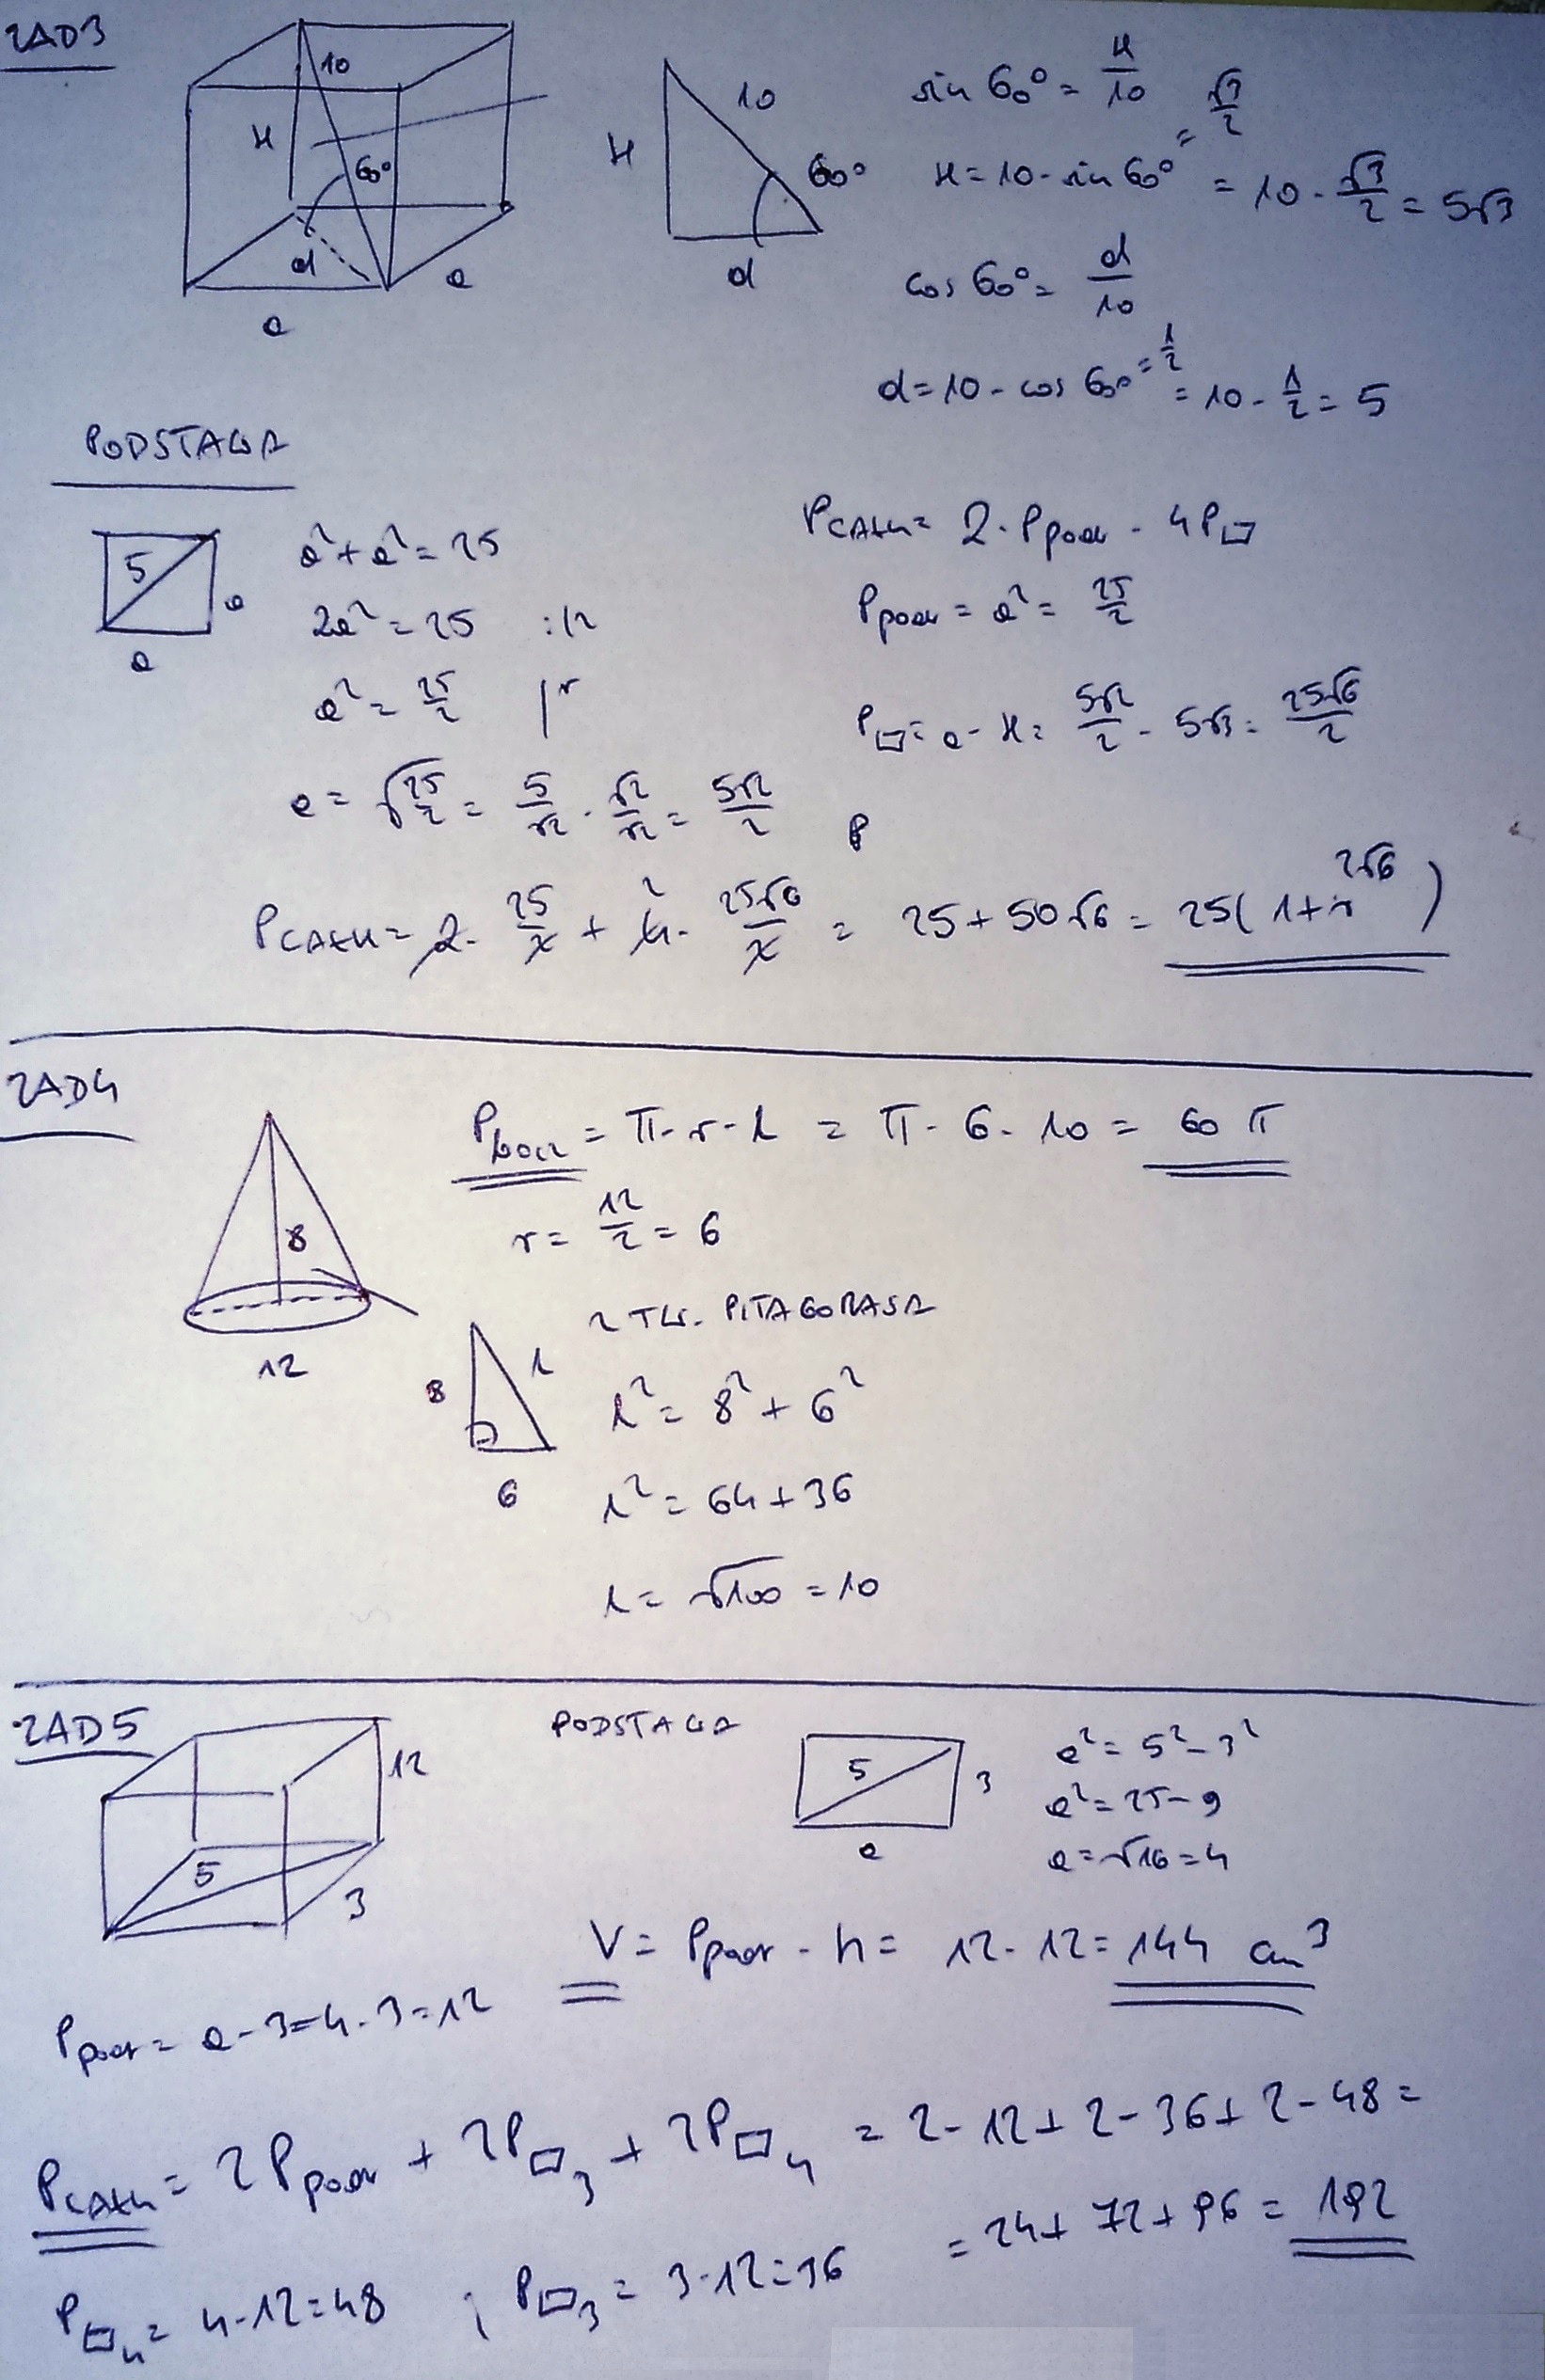 ZAD3
10
H
60°
d
a
a
H
10
60°
d
sin 60° = H/10
H = 10 · sin 60° = √3/2 = 10 · √3/2 = 5√3
cos 60° = d/10
d = 10 · cos 60° = 1/2 = 10 · 1/2 = 5
PODSTAWA
5
a
a
a² + a² = 25
2a² = 25 :/2
a² = 25/2 /√
a = √25/2 = 5/√2 · √2/√2 = 5√2/2
PCAŁK = 2 · Ppodst · 4P□
Ppodst = a² = 25/2
P□ = a · H = 5√2/2 · 5√3 = 25√6/2
P
PCAŁK = 2 · 25/2 + 4 · 25√6/2 = 25 + 50√6 = 25(1 + 2√6)
2
ZAD4
8
12
Pbocz = π · r · l = π · 6 · 10 = 60π
r = 12/2 = 6
Z TW. PITAGORASA
8
l
6
l² = 8² + 6²
l² = 64 + 36
l = √100 = 10
ZAD5
12
5
3
PODSTAWA
5
3
a
a² = 5² - 3²
a² = 25 - 9
a = √16 = 4
V = Ppodst · h = 12 · 12 = 144 cm³
Ppodst = a · 3 = 4 · 3 = 12
PCAŁK = 2Ppodst + 2P□3 + 2P□4 = 2 · 12 + 2 · 36 + 2 · 48 =
= 24 + 72 + 96 = 192
P□4 = 4 · 12 = 48 ; P□3 = 3 · 12 = 36